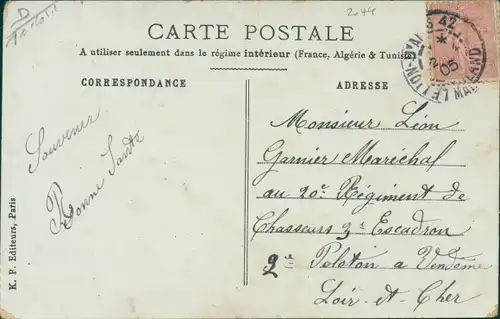 2044
D
CARTE POSTALE
A utiliser seulement dans le régime intérieur (France, Algérie & Tunisie)
CORRESPONDANCE
ADRESSE
Souvenir
Bonne Santé
K. F. Editeurs, Paris
Monsieur Léon
Garnier Maréchal
au 20e Régiment de
Chasseurs 3e Escadron
2e Peloton a Vendôme
Loir-et-Cher
LE LION-D'AN
05